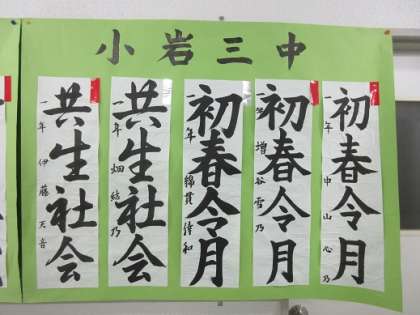 小岩三中
初春令月
一年 中山 心乃
初春令月
一年 増谷 雪乃
初春令月
一年 綿貫 侍和
共生社会
一年 畑 結乃
共生社会
一年 伊藤天音